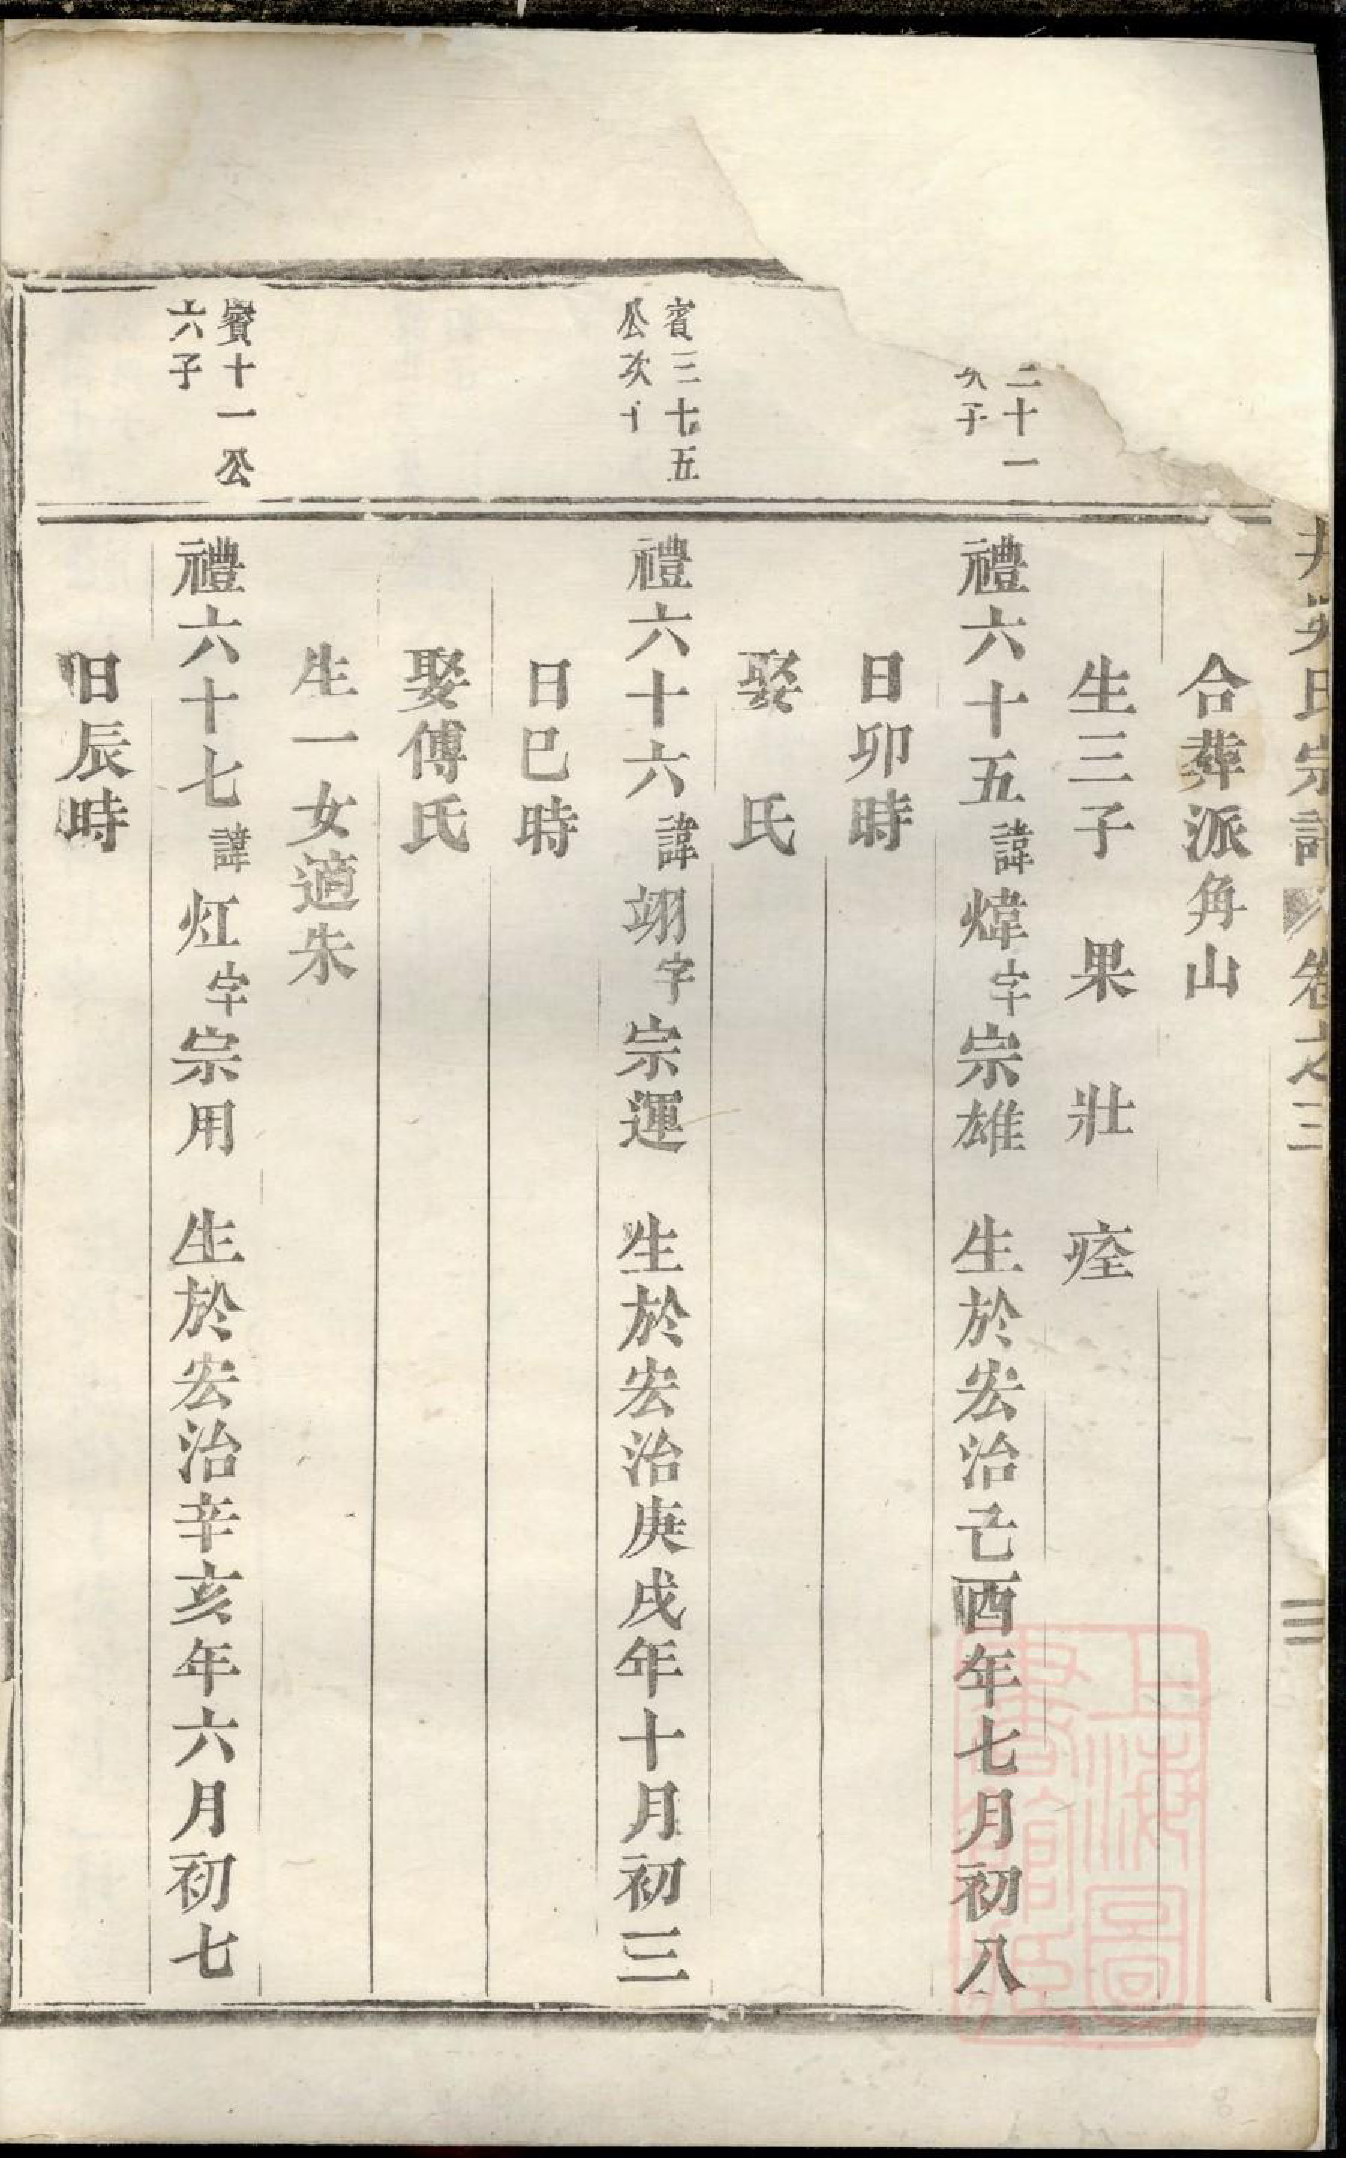 氏宗譜 卷之三
合葬派角山
生三子 果 壯 痊
二十一
次子
禮六十五諱煒字宗雄 生於宏治己酉年七月初八
日卯時
娶 氏
賓三十五
公次子
禮六十六諱翊字宗運 生於宏治庚戌年十月初三
日巳時
娶傅氏
生一女適朱
賓十一公
六子
禮六十七諱灴字宗用 生於宏治辛亥年六月初七
日辰時
上海圖
書館藏